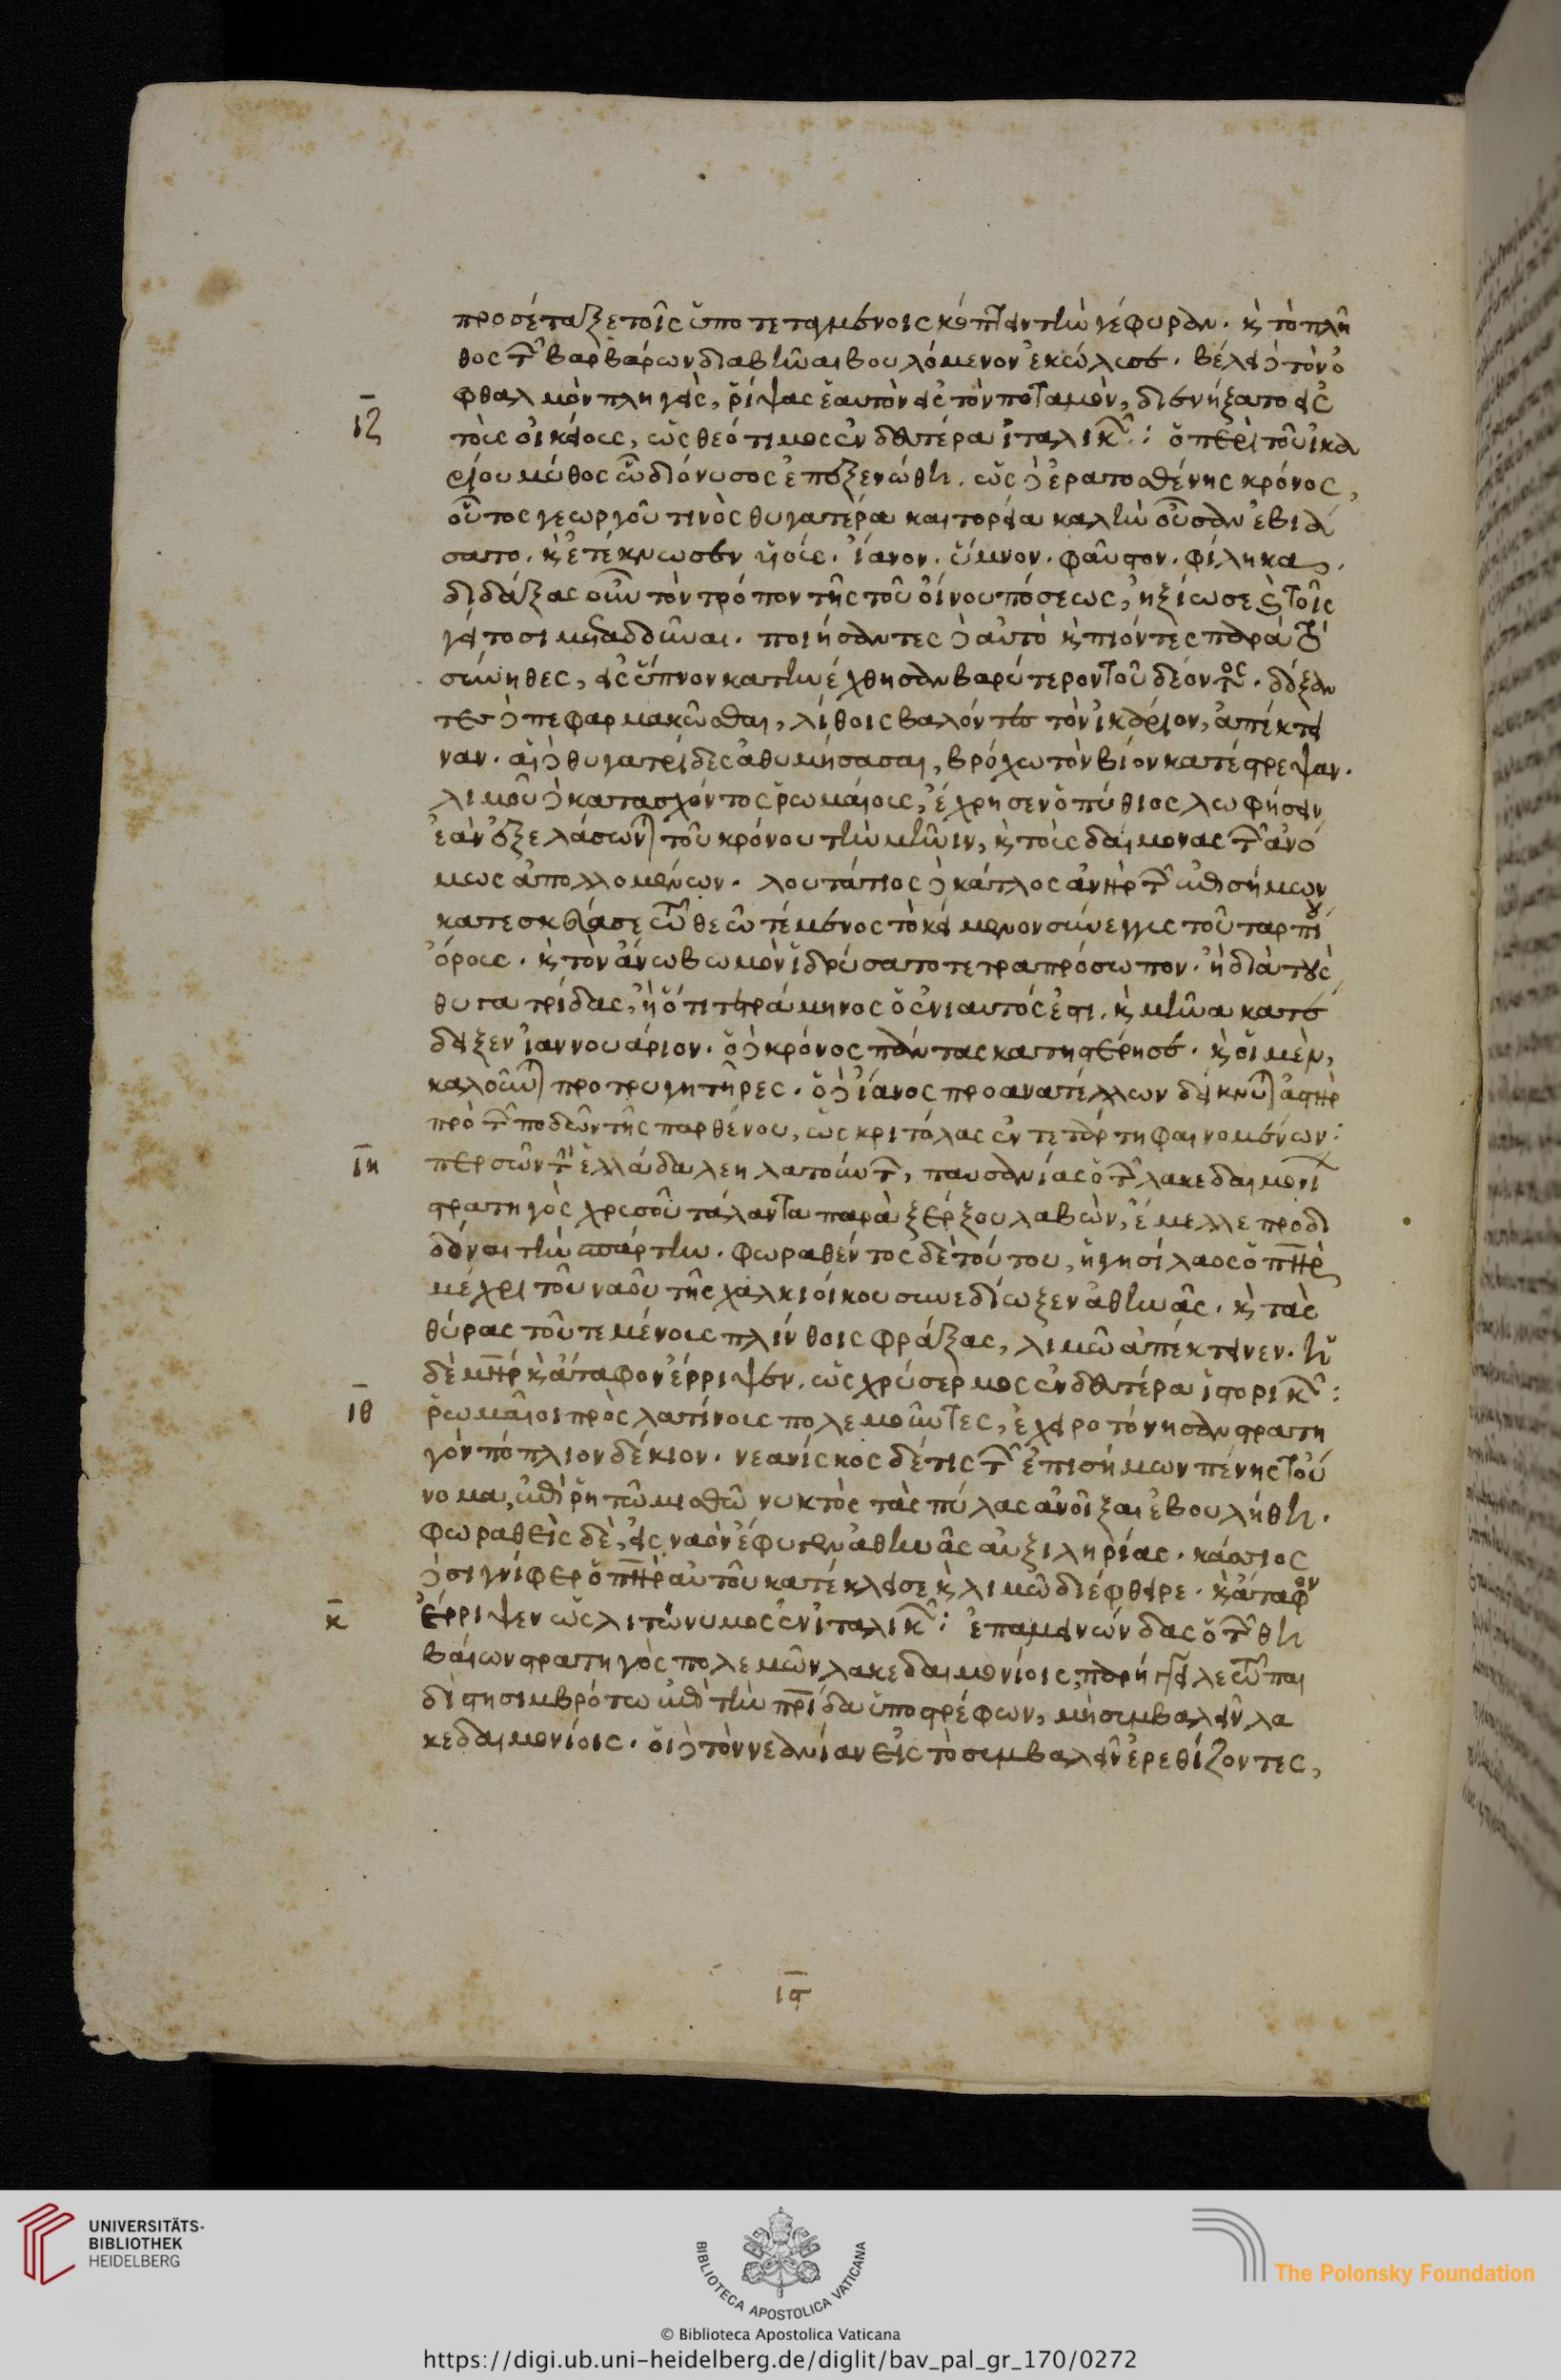 προσέταξε τοῖς ὑποτεταγμένοις κόπτειν τὴν γέφυραν. κ̀ τὸ πλῆ
θος τῶν βαρβάρων διαβῆναι βουλόμενον ἐκώλυσε. βέλει δὲ τὸν ὀ
φθαλμὸν πληγεὶς, ῥίψας ἑαυτὸν εἰς τὸν ποταμὸν, διενήξατο εἰς
ιζ τοὺς οἰκείους, ὡς θεότιμος ἐν δευτέρα ἰταλικῶν: ὁ περὶ τοῦ ἰκα
ρίου μύθος ὧ διόνυσος ἐπεξενώθη. ὡς δὲ ἐρατοσθένης κρόνος,
οὗτος γεωργοῦ τινὸς θυγατέρα καὶ τορεία καλὴν οὖσαν ἐβιά
σατο. κ̀ ἐτέκνωσεν υἱούς. ἴανον. ὕμνον. φαῦστον. φίληκα.
διδάξας οὖν τὸν τρόπον τῆς τοῦ οἴνου πόσεως, ἠξίωσε κ̀ τοῖς
γείτοσι μεταδοῦναι. ποιήσαντες δὲ αὐτὸ κ̀ πιόντες παρὰ τὸ
σύνηθες, εἰς ὕπνον κατηνέχθησαν βαρύτερον τοῦ δέοντος. δόξαν
τες δὲ πεφαρμακῶσθαι, λίθοις βαλόντες τὸν ἰκάριον, ἀπέκτει
ναν. αἱ δὲ θυγατρίδες ἀθυμήσασαι, βρόχω τὸν βίον κατέστρεψαν.
λιμοῦ δὲ κατασχόντος ῥωμαίους, ἔχρησεν ὁ πύθιος λωφήσειν
ἐὰν ἐξελάσωνται τοῦ κρόνου τὴν μῆνιν, κ̀ τοὺς δαίμονας τῶν ἀνό
μως ἀπολλομένων. λουτάτιος δὲ κάτλος ἀνὴρ τῶν ἐπισήμων
κατεσκεύασε τῶ θεῶ τέμενος τὸ κείμενον σύνεγγυς τοῦ ταρπηίου
ὄρους. κ̀ τὸν ἄνω βωμὸν ἱδρύσατο τετραπρόσωπον. ἢ διὰ τοὺς
θυγατρίδας, ἢ ὅτι τετράμηνος ὁ ἐνιαυτός ἐστι. κ̀ μῆνα κατέ
δειξεν ἰαννουάριον. ὁ δὲ κρόνος πάντας κατηστέρησε. κ̀ οἱ μὲν,
καλοῦνται προτρυγητῆρες. ὁ δὲ ἴανος προανατέλλων δείκνυται ἀστὴρ
πρὸ τῶν ποδῶν τῆς παρθένου, ὡς κριτόλαος ἐν τετάρτη φαινομένων:
ιη περσῶν τὴν ἑλλάδα λεηλατούντων, παυσανίας ὁ τῶν λακεδαιμονίων
στρατηγὸς χρυσοῦ τάλαντα παρὰ ξέρξου λαβὼν, ἔμελλε προδι
δόναι τὴν σπάρτην. φωραθέντος δὲ τούτου, ἡγησίλαος ὁ πηρ
μέχρι τοῦ ναοῦ τῆς χαλκιοίκου συνεδίωξεν ἀθηνᾶς. κ̀ τὰς
θύρας τοῦ τεμένους πλίνθοις φράξας, λιμῶ ἀπέκτεινεν. ἡ
δὲ μηρ κ̀ ἄταφον ἔρριψεν. ὡς χρύσερμος ἐν δευτέρα ἱστορικῶν:
ιθ ῥωμαῖοι πρὸς λατίνους πολεμοῦντες, ἐχειροτόνησαν στρατη
γὸν πόπλιον δέκιον. νεανίσκος δέ τις τῶν ἐπισήμων πένης τοὔ
νομα, ἐπὶ ῥητῶ μισθῶ νυκτὸς τὰς πύλας ἀνοῖξαι ἐβουλήθη.
φωραθεὶς δὲ, εἰς ναὸν ἔφυγεν ἀθηνᾶς αὐξιληρίας. κάσσιος
δὲ σιγνίφερ ὁ πηρ αὐτοῦ κατέκλεισε κ̀ λιμῶ διέφθειρε. κ̀ ἄταφον
κ ἔρριψεν ὡς λιτώνυμος ἐν ἰταλικῶν: ἐπαμεινώνδας ὁ τῶν θη
βαίων στρατηγὸς πολεμῶν λακεδαιμονίοις, παρήγγειλε τῶ παι
δὶ στησιμβρότω ἐπὶ τὴν πρίδα ὑποστρέφων, μὴ συμβαλεῖν λα
κεδαιμονίοις. οἱ δὲ τὸν νεανίαν εἰς τὸ συμβαλεῖν ἐρεθίζοντες,
ις
UNIVERSITÄTS-
BIBLIOTHEK
HEIDELBERG
BIBLIOTECA APOSTOLICA VATICANA
The Polonsky Foundation
© Biblioteca Apostolica Vaticana
https://digi.ub.uni-heidelberg.de/diglit/bav_pal_gr_170/0272